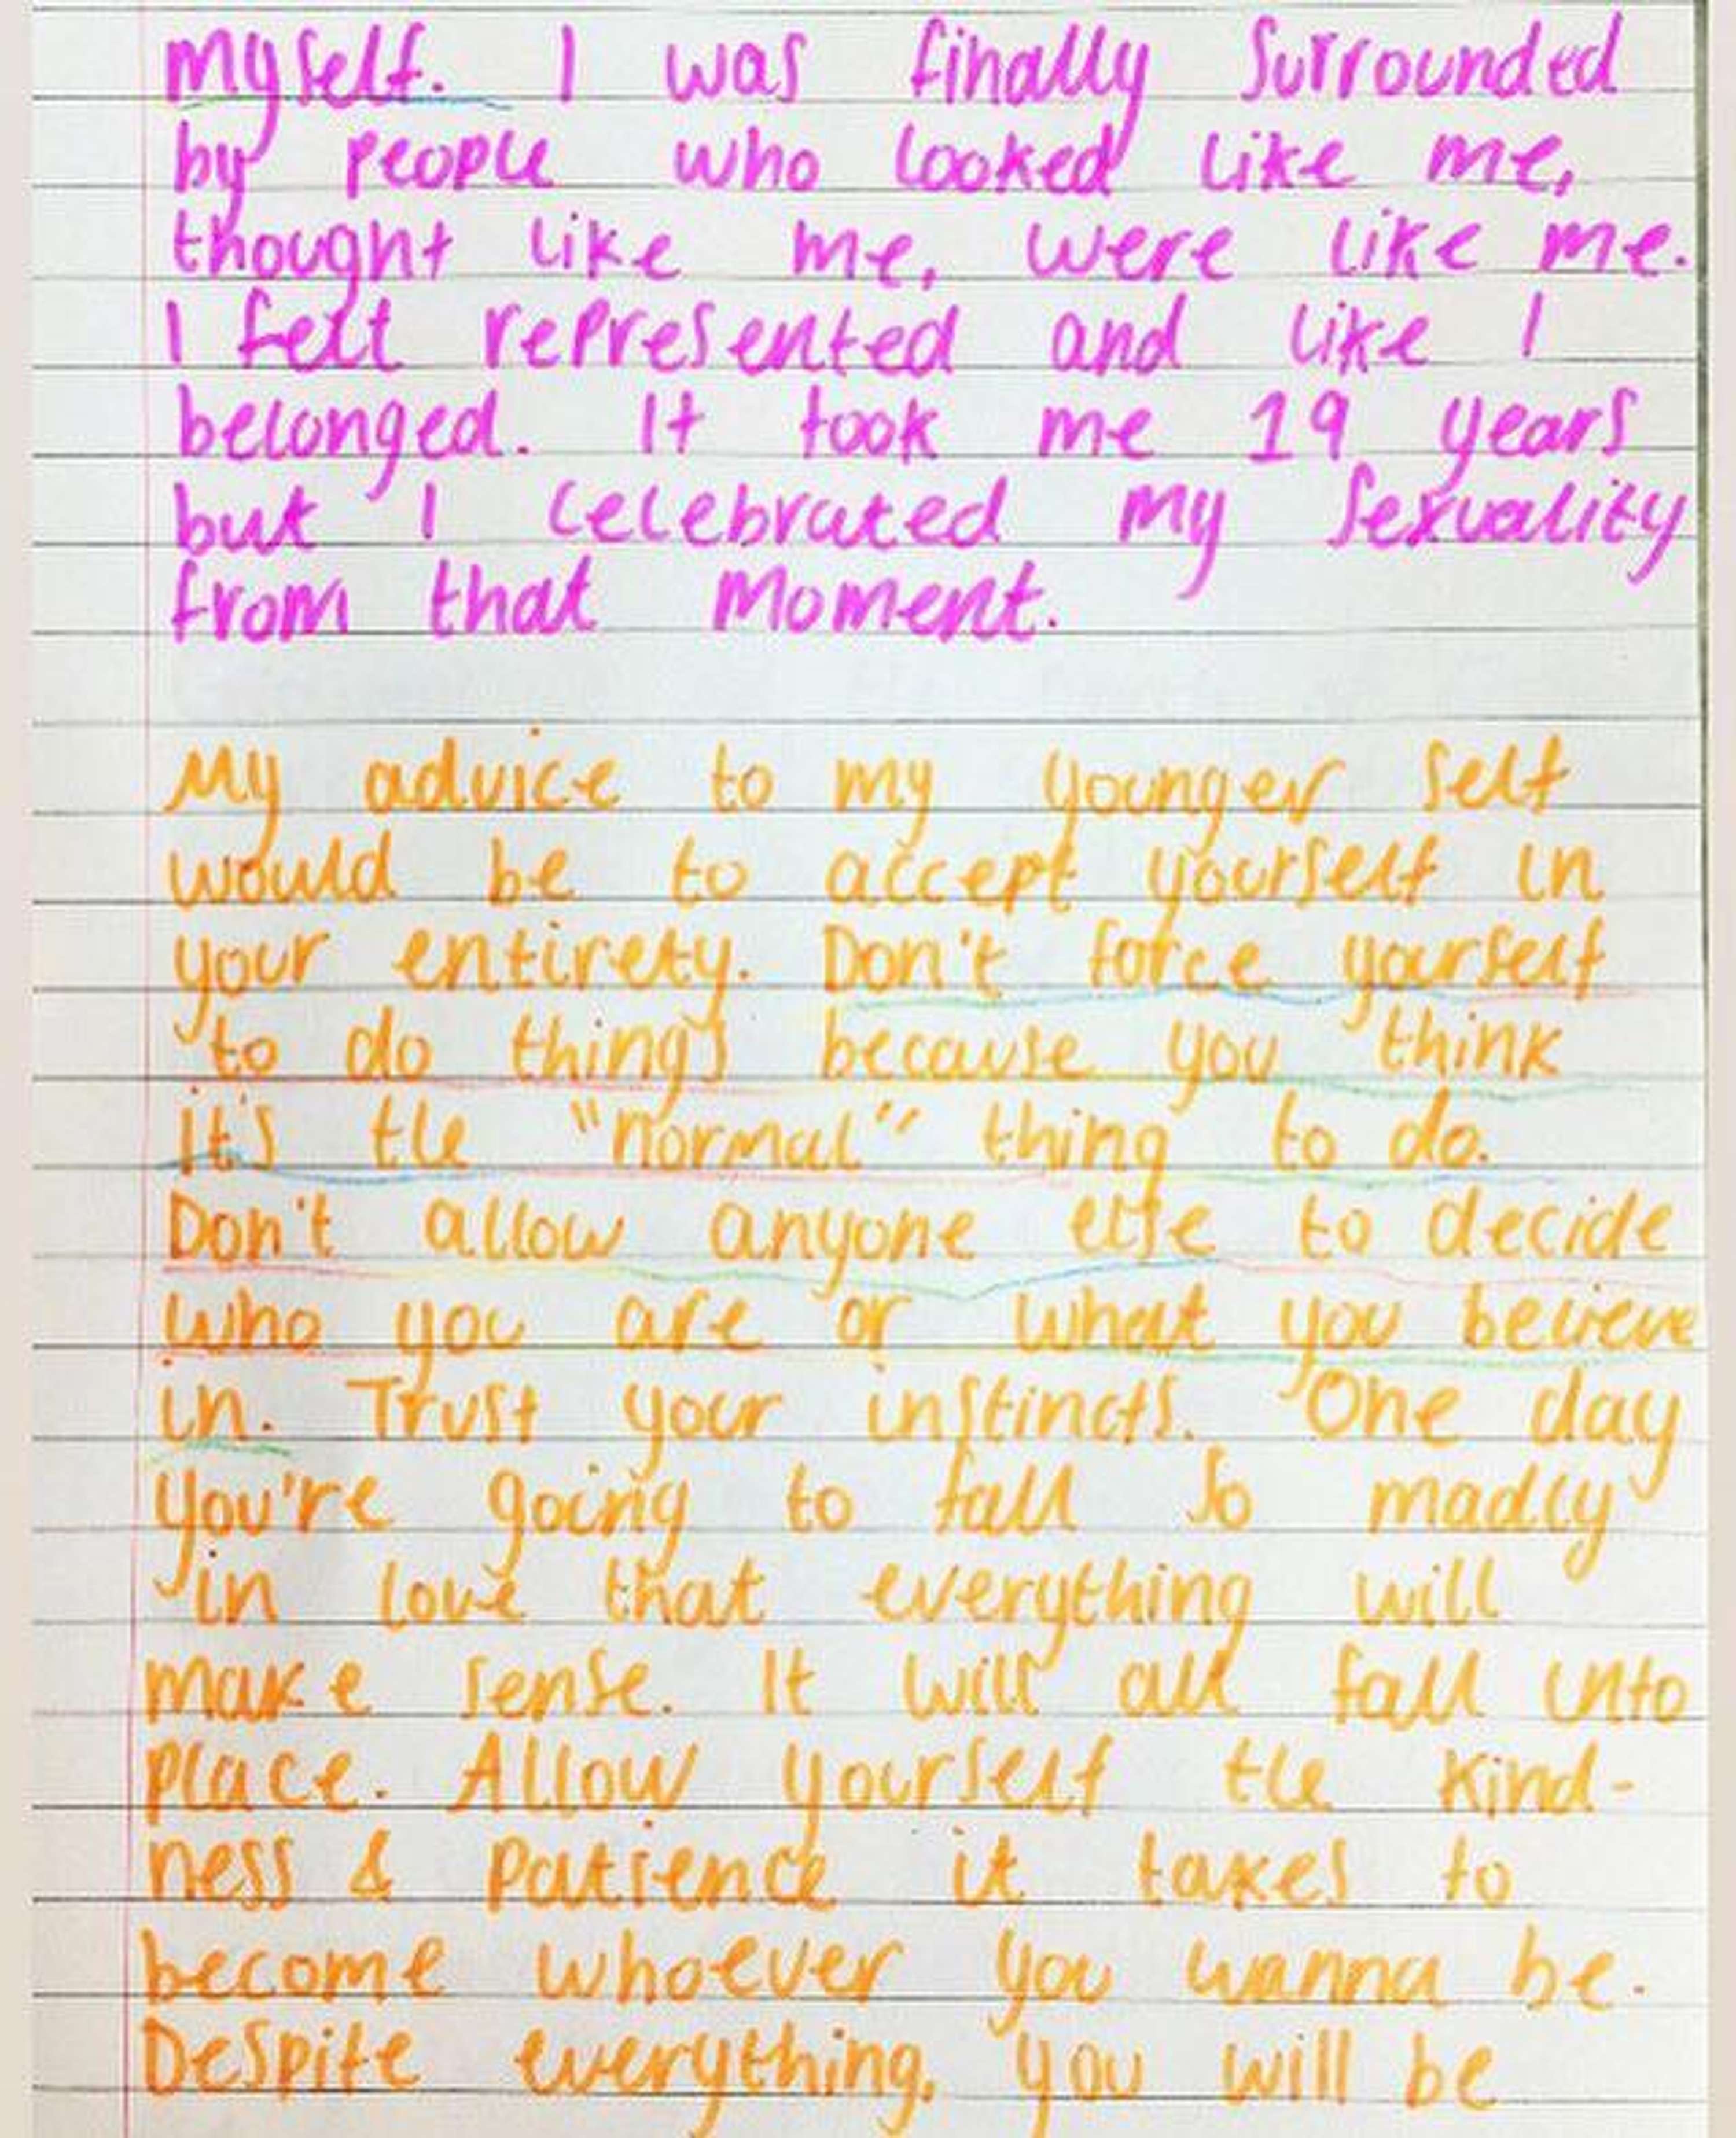 myself. I was finally surrounded
by people who looked like me,
thought like me, were like me.
I felt represented and like I
belonged. It took me 19 years
but I celebrated my sexuality
from that moment.
My advice to my younger self
would be to accept yourself in
your entirety. Don't force yourself
to do things because you think
it's the "normal" thing to do.
Don't allow anyone else to decide
who you are or what you believe
in. Trust your instincts. One day
you're going to fall so madly
in love that everything will
make sense. It will all fall into
place. Allow yourself the kind-
ness & patience it takes to
become whoever you wanna be.
Despite everything, you will be